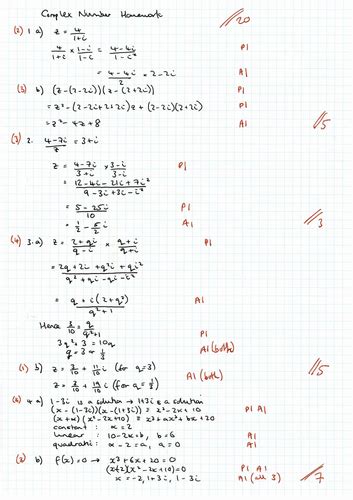 Complex Number Homework
//20
(2) 1 a) z = 4/(1+i)
4/(1+i) × (1-i)/(1-i) = (4-4i)/(1-i²) P1
= (4-4i)/2 = 2-2i A1
(3) b) (z-(2-2i))(z-(2+2i)) P1
= z² - (2-2i+2+2i)z + (2-2i)(2+2i) P1
= z² - 4z + 8 A1 //5
(3) 2. (4-7i)/z = 3+i
z = (4-7i)/(3+i) × (3-i)/(3-i) P1
= (12-4i-21i+7i²)/(9-3i+3i-i²)
= (5-25i)/10 P1
= 1/2 - 5/2 i A1 //3
(4) 3. a) z = (2+qi)/(q-i) × (q+i)/(q+i) P1
= (2q+2i+q²i+qi²)/(q²+qi-qi-i²)
= (q+i(2+q²))/(q²+1) A1
Hence 3/10 = q/(q²+1) P1
3q²+3 = 10q
q = 3 or 1/3 A1 (both)
(1) b) z = 3/10 + 11/10 i (for q=3) A1 (both) //5
z = 3/10 + 19/10 i (for q=1/3)
4 a) 1-3i is a solution → 1+3i is a solution
(x-(1-3i))(x-(1+3i)) = x²-2x+10 P1 A1
(x+α)(x²-2x+10) = x³+ax²+bx+20
constant : α = 2
linear : 10-2α=b, b=6 A1
quadratic : α-2=a, a=0 A1
b) f(x)=0 → x³+6x+20=0
(x+2)(x²-2x+10)=0 P1 A1
x = -2, 1+3i, 1-3i A1 (all 3) //7